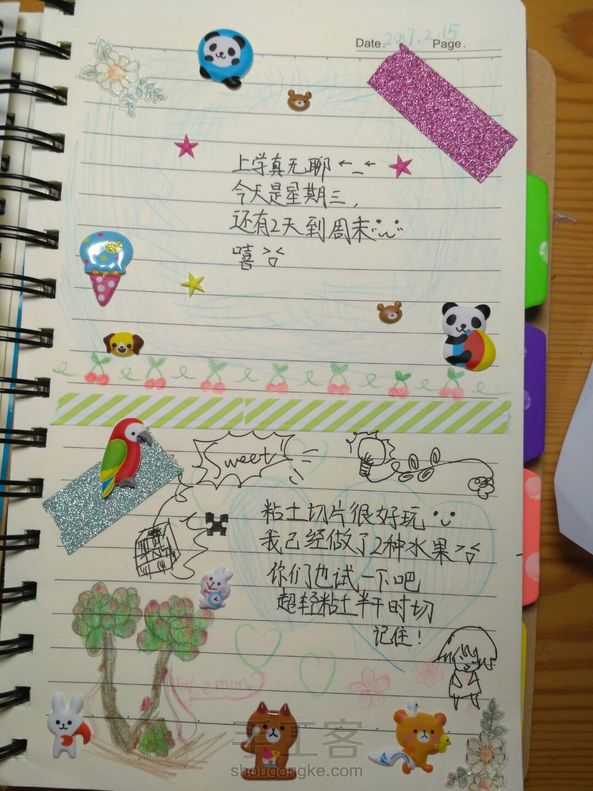 Date. 2017.2.15 Page.
上学真无聊←_←
今天是星期三，
还有2天到周末
嘻
sweet
粘土切片很好玩
我已经做了2种水果
你们也试一下吧
超轻粘土半干时切
记住！
Lemon
手工客
shougongke.com